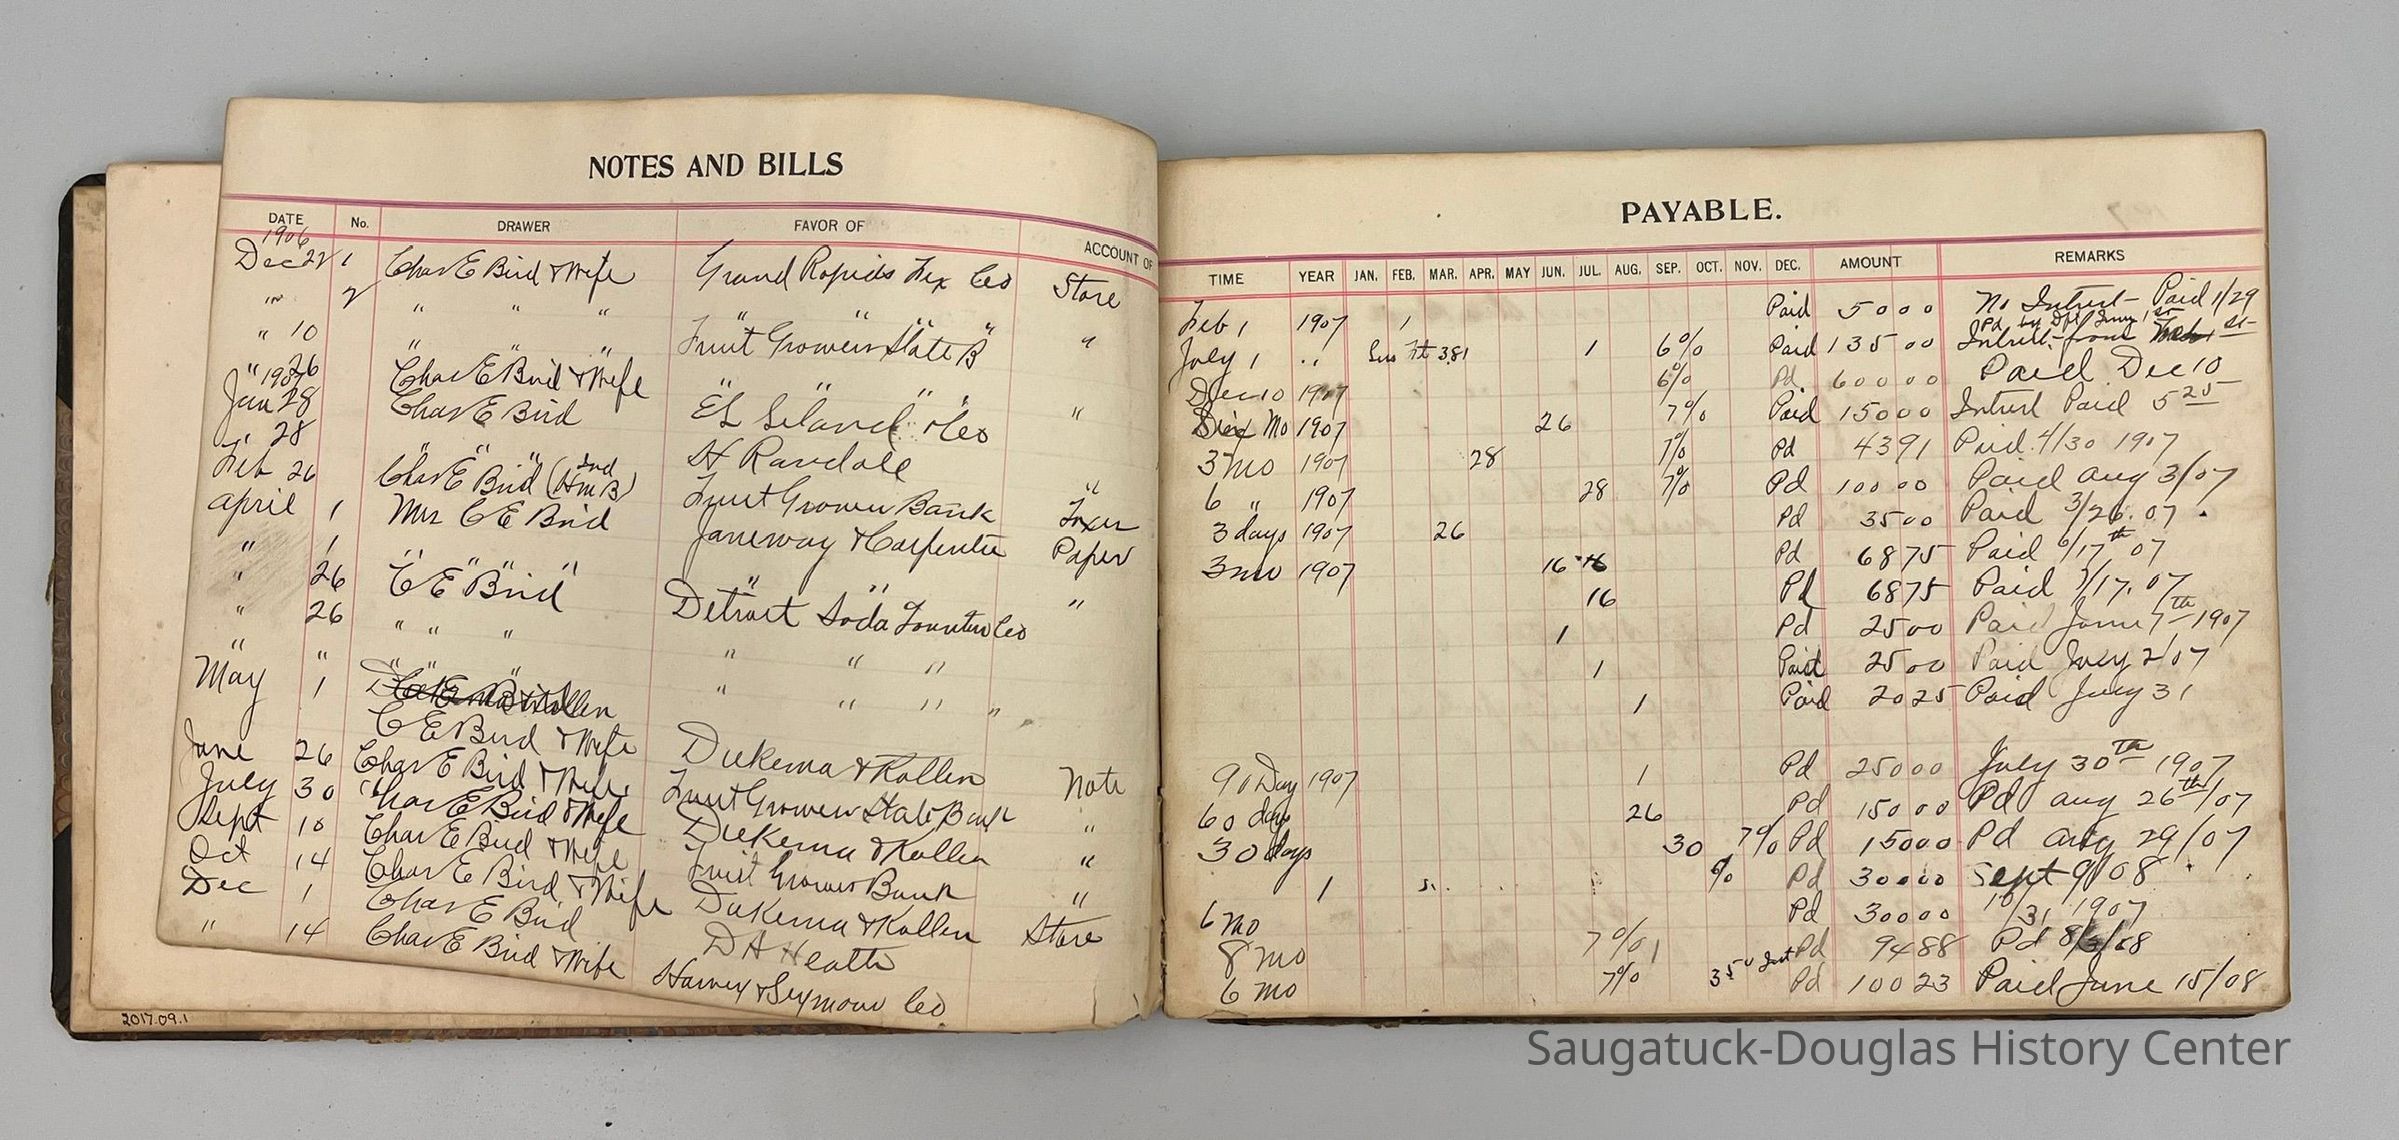 NOTES AND BILLS
DATE No. DRAWER FAVOR OF ACCOUNT OF
1906
Dec 22 1 Chas E Bird & Wife Grand Rapids Fix Co Store
" 2 " " " " " " "
" 10 " " " Fruit Growers State B "
" 26 Chas E Bird & Wife " " "
1907
Jan 28 Chas E Bird E L Leland & Co "
" 28 " " " H Randall
Feb 26 Chas E Bird (Ind HmB) Fruit Grower Bank "
April 1 Mrs C E Bird Janeway & Carpenter Paper
" 1 " " " " " "
" 26 C E Bird Detroit Soda Fountain Co
" 26 " " " " " "
" " " " " " " "
May 1
C E Bird & Wife Diekema & Kollen Note
June 26 Chas E Bird & Wife Fruit Growers State Bank "
July 30 Chas E Bird & Wife Diekema & Kollen "
Sept 10 Chas E Bird & Wife Fruit Grower Bank "
Oct 14 Chas E Bird & Wife Diekema & Kollen Store
Dec 1 Chas E Bird D A Heath
" 14 Chas E Bird & Wife Harvey & Seymour Co
2017.09.1
PAYABLE.
TIME YEAR JAN. FEB. MAR. APR. MAY JUN. JUL. AUG. SEP. OCT. NOV. DEC. AMOUNT REMARKS
Feb 1 1907 1 Paid 50 00 No Intrest - Paid 1/29
July 1 " 1 6% Paid 135 00 Intrest from
Dec 10 1907 6% Pd. 600 00 Paid Dec 10
Mo 1907 26 7% Paid 150 00 Intrest Paid 5 25
3 mo 1907 28 7% Pd 43 91 Paid 4/30 1907
6 " 1907 28 7% Pd 100 00 Paid Aug 3/07
3 days 1907 26 Pd 35 00 Paid 3/26.07
3 mo 1907 16 Pd 68 75 Paid 6/17th 07
16 Pd 68 75 Paid 7/17.07
1 Pd 25 00 Paid June 7th 1907
1 Paid 25 00 Paid July 2/07
1 Paid 20 25 Paid July 31
90 Day 1907 1 Pd 250 00 July 30th 1907
60 days 26 Pd 150 00 Pd Aug 26th/07
30 days 30 7% Pd 150 00 Pd Aug 29/07
1 % Pd 300 00 Sept 9/08
6 Mo Pd 300 00 10/31 1907
8 Mo 7% 1 Pd 94 88 Pd 8/ /08
6 Mo 7% 3 50 Int Pd 100 23 Paid June 15/08
Saugatuck-Douglas History Center